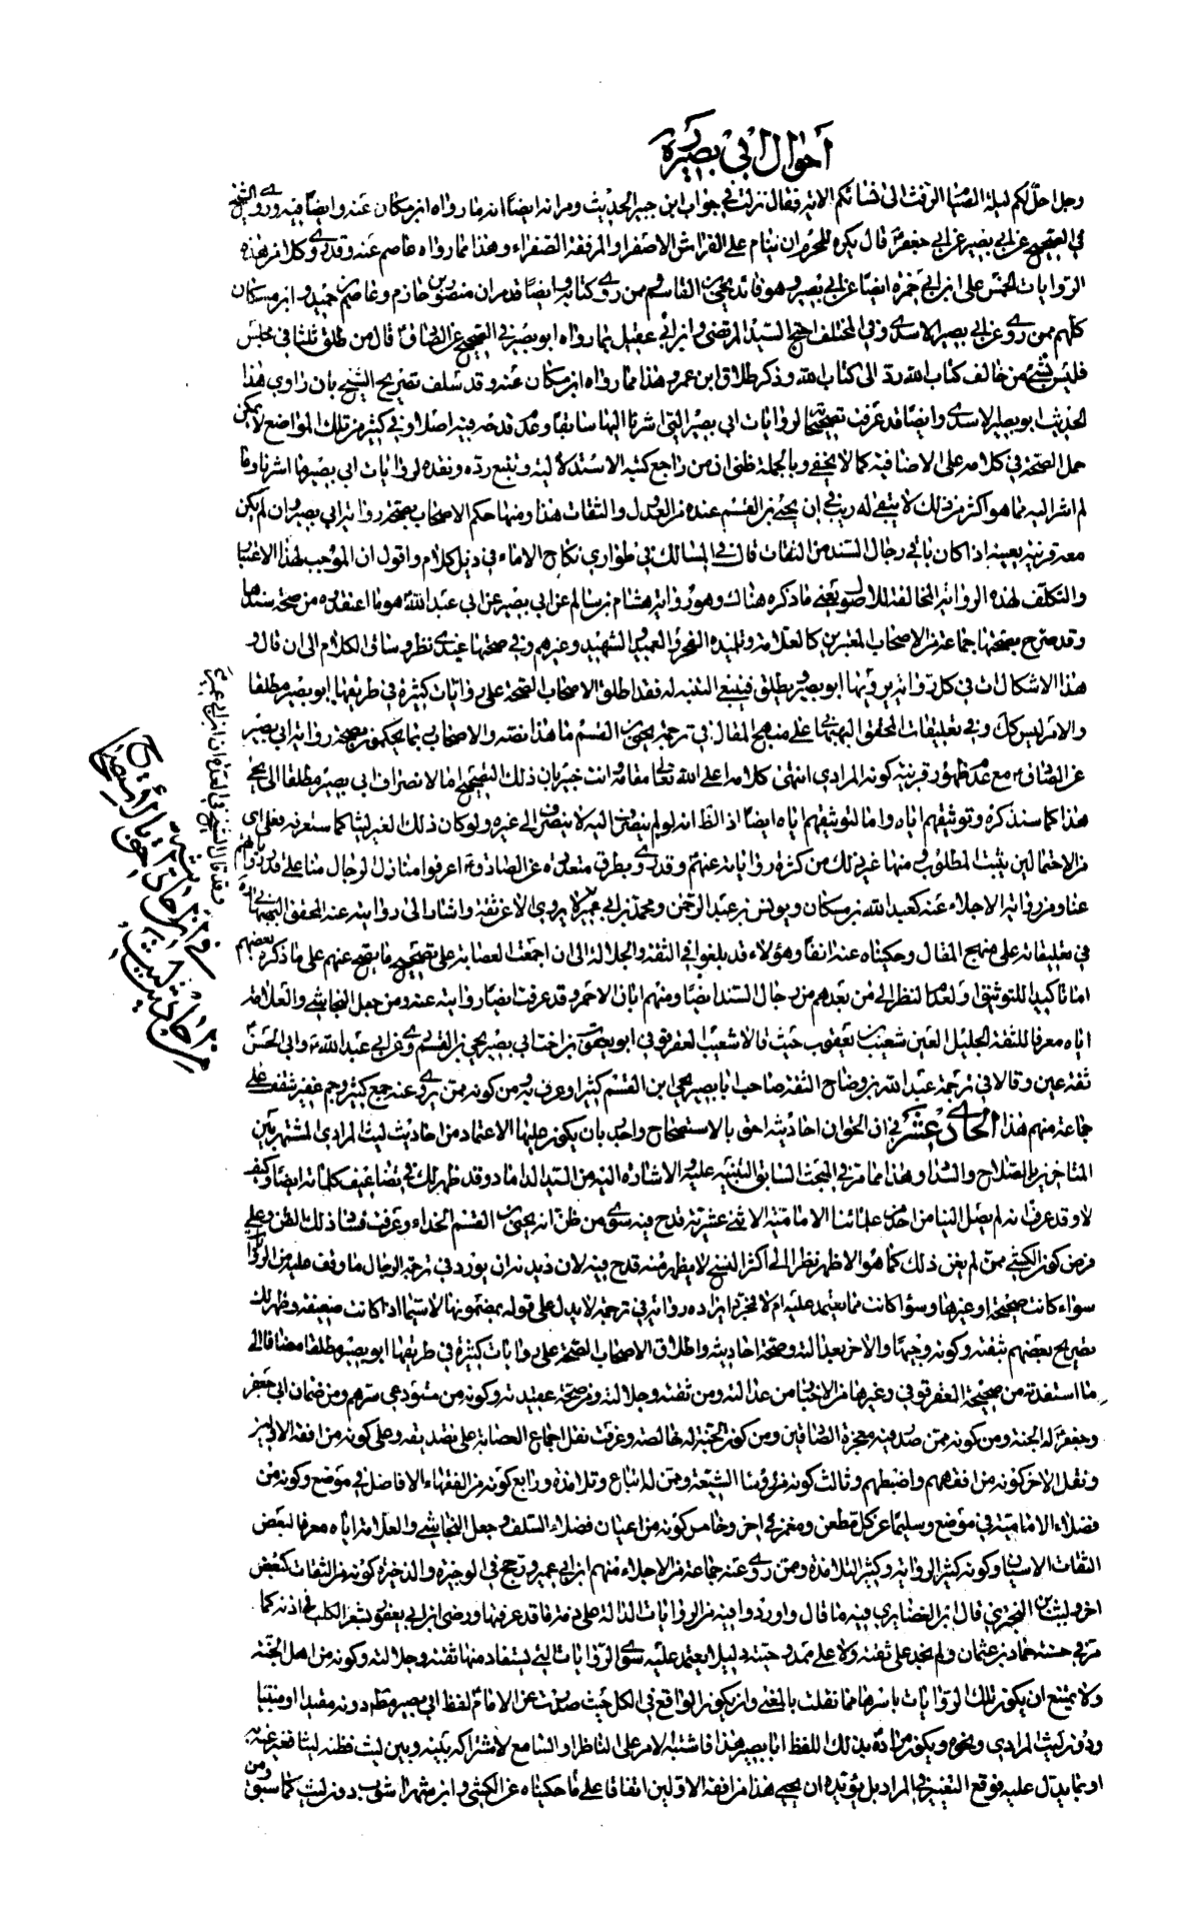 أحوال ابي بصير ره
وجل احل لكم ليلة الصيام الرفث الى نسائكم الاية فقال نزلت في خوات ابن جبير الحديث ومر انه ايضا انه مما رواه ابن مسكان عنه وايضا فيه وروى الشيخ
في الصحيح عن ابي بصير عن ابي جعفر قال يكره للمحرم ان ينام على الفراش الاصفر او المرفقة الصفراء وهذا مما رواه عاصم عنه وقد روى كلا من هذه
الروايات الخمس على ابن ابي حمزة ايضا عن ابي بصير وهو قائد يحيى بن القاسم ومن روى كتابه وايضا قد مر ان منصور بن حازم وعاصم بن حميد وابن مسكان
كلهم ممن روى عن ابي بصير الاسدي وفي المختلف احتج السيد المرتضى وابن ابي عقيل بما رواه ابو بصير في الصحيح عن الصادق قال من طلق ثلثا في مجلس
فليس بشيء من خالف كتاب الله رد الى كتاب الله وذكر طلاق ابن عمر وهذا مما رواه ابن مسكان عنه وقد سلف تصريح الشيخ بان راوي هذا
الحديث ابو بصير الاسدي وايضا قد عرفت تصحيحه لروايات ابي بصير التي اشرنا اليها سابقا وعدم قدحه فيه اصلا وفي كثير من تلك المواضع لا يمكن
حمل الصحة في كلامه على الاضافية كما لا يخفى وبالجملة ظني ان من راجع كتبه الاستدلالية وتتبع رده ونقده لروايات ابي بصير مما اشرنا وما
لم اشر اليه مما هو اكثر من ذلك لا يبقى له ريب في ان يحيى بن القسم عنده من العدول والثقات هذا ومنها حكم الاصحاب بصحة رواية ابي بصير وان لم يكن
معه قرينة بعينه اذا كان باقي رجال السند من الثقات قال في المسالك في طواري نكاح الاماء في ذيل كلام واقول ان الموجب لهذا الاعتناء
والتكلف لهذه الرواية المخالفة للاصول يعني ما ذكره هناك وهو رواية هشام بن سالم عن ابي بصير عن ابي عبد الله هو ما اعتقدوه من صحة سندها
وقد صرح بصحتها جماعة من الاصحاب المعتبرين كالعلامة وتلميذه الفخر والعميد والشهيد وغيرهم وفي صحتها عندي نظر وساق الكلام الى ان قال و
هذا الاشكال ات في كل رواية يرويها ابو بصير ويطلق فينبغي التنبه له فقد اطلق الاصحاب الصحة على روايات كثيرة في طريقها ابو بصير مطلقا
والامر ليس كك وفي تعليقات المحقق البهبهاني على منهج المقال في ترجمة يحيى بن القسم ما هذا نصه والاصحاب ربما يحكمون بصحة رواية ابي بصير
عن الصادق ع مع عدم ظهور قرينة كونه المرادي انتهى كلامه اعلى الله تعالى مقامه وانت خبير بان ذلك التصحيح اما لانصراف ابي بصير مطلقا الى يحيى
هذا كما سنذكره وتوثيقهم اياه واما لتوثيقهم اياه ايضا اذ الظ انه لو لم ينصرف اليه لا ينصرف الى غيره ولو كان ذلك الغير ليثا كما ستعرفه فعلى اي
من الاحتمالين يثبت المطلوب ومنها غير ذلك من كثرة رواياته عنهم وقد روى بطرق متعددة عن الصادق ع اعرفوا منازل الرجال منا على قدر رواياتهم
عنا ومن رواية الاجلاء عنه كعبد الله بن مسكان ويونس بن عبد الرحمن ومحمد بن ابي عمير لا يروي الا عن ثقة واشار الى روايته عنه المحقق البهبهاني ره
في تعليقاته على منهج المقال وحكيناه عنه انفا وهؤلاء قد بلغوا في الثقة والجلالة الى ان اجمعت العصابة على تصحيح ما يصح عنهم على ما ذكره بعضهم
اما تاكيدا للتوثيق او لعدم النظر الى من بعدهم من رجال السند ايضا ومنهم ابان الاحمر وقد عرفت ايضا روايته عنه ومن جعل النجاشي والعلامة
اياه معرفا للثقة الجليل العين شعيب بن يعقوب حيث قالا شعيب العقرقوفي ابو يعقوب ابن اخت ابي بصير يحيى بن القسم روى عن ابي عبد الله ع وابي الحسن
ثقة عين وقالا في ترجمة عبد الله بن وضاح الثقة صاحب ابا بصير يحيى ابن القسم كثيرا وعرف به ومن كونه ممن يروى عنه جمع كثير وجم غفير ستقف على
جماعة منهم هذا الحادي عشر في ان الحق ان احاديثه احق بالاستصحاح واحرى بان يكون عليها الاعتماد من احاديث ليث المرادي المشتهر بين
المتاخرين بالصلاح والسداد وهذا مما مر في المبحث السابق التنبيه عليه والاشارة اليه من السيد الداماد وقد ظهر لك في تضاعيف كلماته ايضا وكيف
لا وقد عرفت انه لم يصل الينا من احد من علمائنا الامامية الاثني عشرية قدح فيه سوى من ظن انه يحيى بن القسم الحذاء وعرفت فساد ذلك الظن وعلى
فرض كون الكشي ممن لم يظن ذلك كما هو الاظهر نظرا الى اكثر النسخ لا يظهر منه قدح فيه لان ديدنه ان يورد في ترجمة الرجال ما وقف عليه من الروايات
سواء كانت صحيحة او غيرها وسواء كانت مما يعتمد عليه ام لا فمجرد ايراده رواية في ترجمة لا يدل على قوله بمضمونها لا سيما اذا كانت ضعيفة وظهر لك
تصريح بعضهم بثقته وكونه وجيها والاخر بعدالته وصحة احاديثه واطلاق الاصحاب الصحة على روايات كثيرة في طريقها ابو بصير مطلقا مضافا الى
ما استفدته من صحيحة العقرقوفي وغيرها من الاخبار من عدالته ومن ثقته وجلالته ومن صحة عقيدته وكونه من مستودعي سرهم ومن ضمان ابي جعفر
وجعفر له الجنة ومن كونه ممن صدر فيه معجزة الصادقين ومن كون الجنة له خالصة وعرفت نقل اجماع العصابة على تصديقه وعلى كونه من افقه الاولين
ونقل الاخر كونه من افقههم واضبطهم وثالث كونه من رؤساء الشيعة وممن له اتباع وتلامذة ورابع كونه من الفقهاء الافاضل في موضع وكونه من
فضلاء الامامية في موضع وسليما عن كل مطعن ومغمز في اخر وخامس كونه من اعيان فضلاء السلف وجعل النجاشي والعلامة اياه معرفا لبعض
الثقات الاعيان وكونه كثير الرواية وكثير التلامذة وممن روى عنه جماعة من الاجلاء منهم ابن ابي عمير ورجح في الوجيزة والذخيرة كونه من الثقات كبعض
اخر وليث بن البختري قال ابن الغضايري فيه ما قال واوردوا فيه من الروايات الدالة على ذمه ما قد عرفتها ورضى ابن ابي يعفور بشغر الكلب في اذنه كما
مر في حسنة حماد بن عثمان ولم يجد على ثقته ولا على ممدوحيته دليل يعتمد عليه سوى الروايات التي يستفاد منها ثقته وجلالته وكونه من اهل الجنة
ولا يمتنع ان يكون تلك الروايات باسرها مما نقلت بالمعنى وان يكون الواقع في الكل حيث صدرت عن الامام لفظ ابي بصير مطلقا دونه مقيدا او منبئا
ودون ليث المرادي ونحوه ويكون مراده بذلك اللفظ ابا بصير هذا فاشتبه الامر على الناظر او السامع لاشتراكه بينه وبين ليث فظنه ليثا فعبر عنه به
او بما يدل عليه فوقع التغيير في المراد بل يؤيده ان يحيى هذا من افقه الاولين اتفاقا على ما حكيناه عن الكشي وابن شهراشوب دون ليث كما سبق ومن
وقد قال الشيخ في العدة ان ابن ابي عمير
في ان احاديثه احق بالاستصحاح
من احاديث ليث